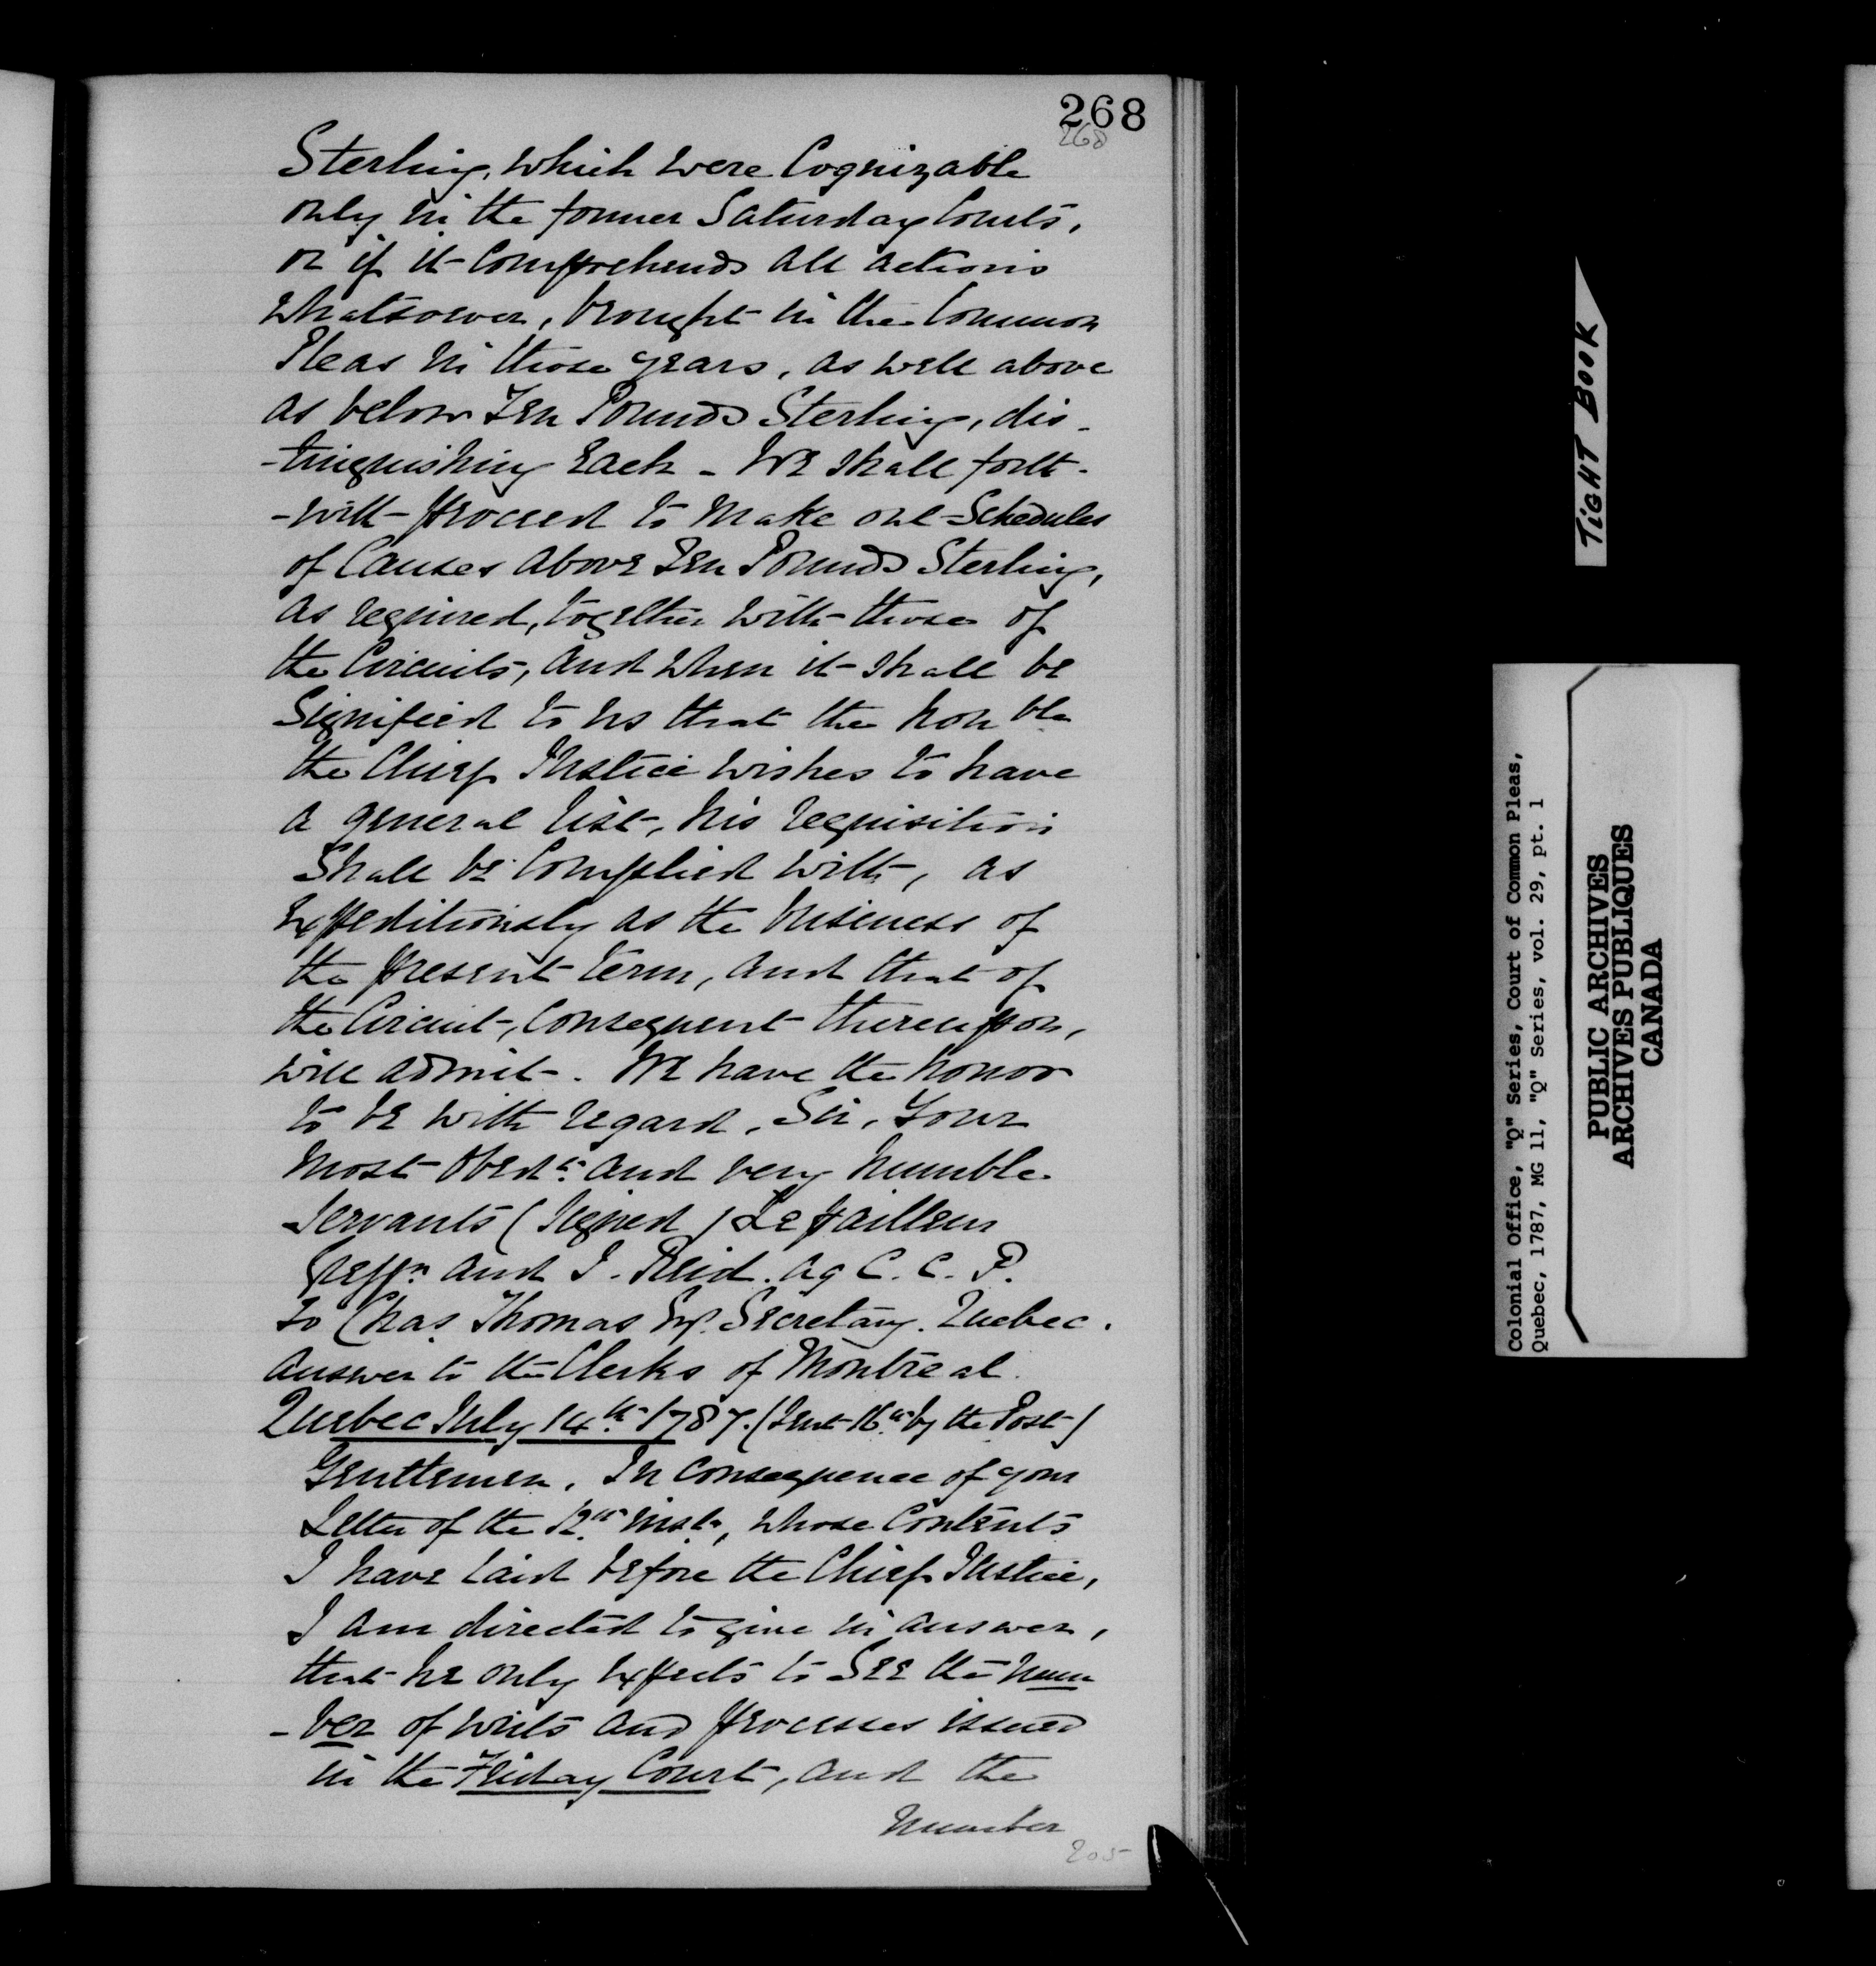 268
268
Sterling, which were Cognizable
only in the former Saturday Courts,
or if it comprehends all actions
whatsoever, brought in the Common
Pleas in those years, as well above
as below Ten Pounds Sterling, dis-
-tinguishing Each - We shall forth-
-with proceed to make out Schedules
of Causes above Ten Pounds Sterling,
as required, together with those of
the Circuits, and when it shall be
Signified to us that the honble
the Chief Justice wishes to have
a general list, his requisition
Shall be Complied with, as
Expeditiously as the business of
the present term, and that of
the Circuit, Consequent thereupon,
will admit. We have the honor
to be with regard, Sir, Your
most Obedt. and very humble
Servants (Signed) Le Pailleur
Greffr. and J. Reid. ag C. C. P.
To Chas Thomas Esq. Secretary. Quebec.
Answer to the Clerks of Montreal.
Quebec July 14th. 1787. (Sent 16th. by the Post)
Gentlemen, In Consequence of your
Letter of the 12th. inst., whose Contents
I have laid before the Chief Justice,
I am directed to give in answer,
that he only Expects to See the Num
-ber of writs and processes issued
in the Friday Court, and the
Number
205
TIGHT BOOK
Colonial Office, "Q" Series, Court of Common Pleas,
Quebec, 1787, MG 11, "Q" Series, vol. 29, pt. 1
PUBLIC ARCHIVES
ARCHIVES PUBLIQUES
CANADA